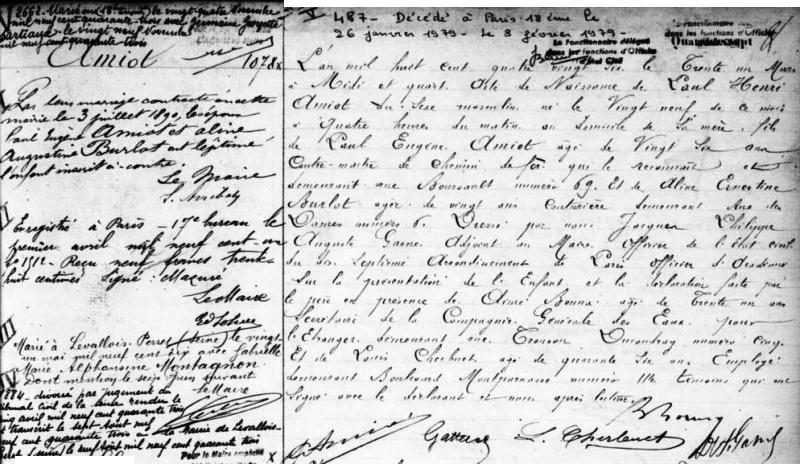 2662 - Marié au 18e arrond. le vingt quatre Novembre
mil neuf cent quarante trois avec Germaine
le vingt neuf Novembre
mil neuf cent quarante trois
Amiot
1078
I
Par leur mariage contracté en cette
mairie le 3 juillet 1890, les époux
Paul Eugène Amiot et Aline
Augustine Burlot ont légitimé
l'enfant inscrit ci-contre.
Le Maire
II
Enregistré à Paris - 17e bureau le
premier avril mil neuf cent
1912 - Reçu neuf francs trente-
huit centimes Signé :
Le Maire
III
Marié à Levallois-Perret (Seine) le vingt-
un mai mil neuf cent dix avec Gabrielle
Marie Alphonsine Montagnon
dont mention le seize juin suivant
Le Maire
IV
884 - divorcé par jugement du
tribunal civil de la Seine rendu le
avril mil neuf cent quarante trois
et transcrit le sept Août mil
neuf cent quarante trois à la Mairie de Levallois-
Perret (Seine) le mil neuf cent quarante trois
Pour le Maire empêché
V 487 - Décédé à Paris - 18ème le
26 janvier 1979 - le 3 février 1979 -
Le Fonctionnaire délégué
dans les fonctions d'Officier
d'Etat Civil
dans les fonctions d'Officier
L'an mil huit cent quatre vingt six le Trente un Mars
à Midi et quart. Acte de Naissance de Paul Henri
Amiot du sexe masculin né le Vingt neuf de ce mois
à quatre heures du matin au domicile de sa mère, fils
de Paul Eugène Amiot âgé de Vingt six ans
Contre-maître de Chemin de fer qui le reconnaît et
demeurant rue Boursault numéro 69. Et de Aline Ernestine
Burlot âgée de vingt ans couturière demeurant Rue des
Dames numéro 6. Dressé par nous Jacques Philippe
Auguste Adjoint au Maire, Officier de l'état civil
du dix Septième Arrondissement de Paris officier d'Académie
Sur la présentation de l'Enfant et la déclaration faite par
le père en présence de Aimé Bonna âgé de Trente un ans
Secrétaire de la Compagnie Générale des Eaux pour
l'Etranger demeurant rue Tronson Ducoudray numéro cinq.
Et de Louis Cherbuet âgé de quarante six ans Employé
demeurant Boulevard Montparnasse numéro 114. témoins qui ont
Signé avec le déclarant et nous après lecture.
Amiot L. Cherbuet